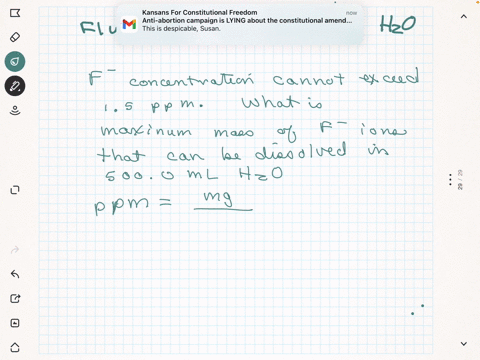 Kansans For Constitutional Freedom
now
Anti-abortion campaign is LYING about the constitutional amend...
This is despicable, Susan.
Flu H₂O
F⁻ concentration cannot exceed
1.5 ppm. What is
maximum mass of F⁻ ions
that can be dissolved in
500.0 mL H₂O
ppm = mg
29 / 29